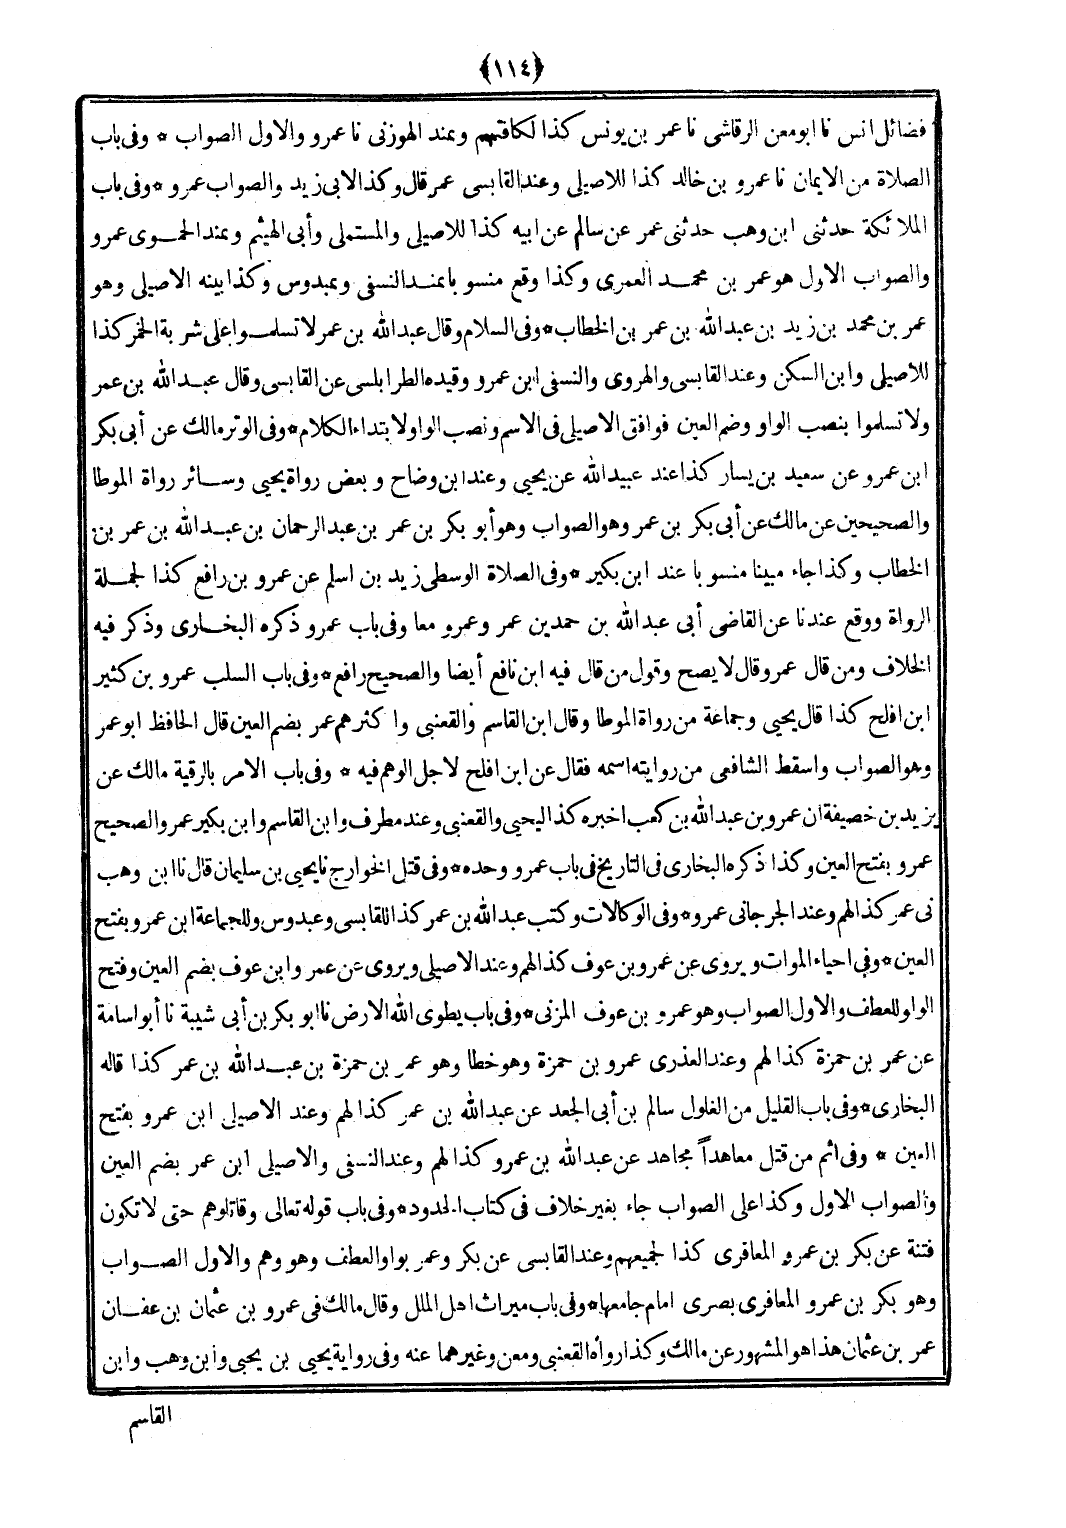 ﴿١١٤﴾
فضائل انس نا ابو معن الرقاشى نا عمر بن يونس كذا لكافتهم وعند الهوزنى نا عمرو والاول الصواب * وفى باب
الصلاة من الايمان نا عمرو بن خالد كذا للاصيلى وعند القابسى عمر قال وكذا لابى زيد والصواب عمرو * وفى باب
الملائكة حدثنى ابن وهب حدثنى عمر عن سالم عن ابيه كذا للاصيلى والمستملى وأبى الهيثم وعند الحموى عمرو
والصواب الاول هو عمر بن محمد العمرى وكذا وقع منسو با عند النسفى وعبدوس وكذا بينه الاصيلى وهو
عمر بن محمد بن زيد بن عبدالله بن عمر بن الخطاب * وفى السلام وقال عبدالله بن عمر لا تسلموا على شربة الخمر كذا
للاصيلى وابن السكن وعند القابسى والهروى والنسفى ابن عمرو وقيده الطرابلسى عن القابسى وقال عبدالله بن عمر
ولا تسلموا بنصب الواو وضم العين فوافق الاصيلى فى الاسم ونصب الواو لابتداء الكلام * وفى الوتر مالك عن أبى بكر
ابن عمرو عن سعيد بن يسار كذا عند عبيدالله عن يحيى وعند ابن وضاح و بعض رواة يحيى وسائر رواة الموطا
والصحيحين عن مالك عن أبى بكر بن عمر وهو الصواب وهو أبو بكر بن عمر بن عبدالرحمان بن عبدالله بن عمر بن
الخطاب وكذا جاء مبينا منسو با عند ابن بكير * وفى الصلاة الوسطى زيد بن اسلم عن عمرو بن رافع كذا لجملة
الرواة ووقع عندنا عن القاضى أبى عبدالله بن حمدين عمر وعمرو معا وفى باب عمرو ذكره البخارى وذكر فيه
الخلاف ومن قال عمر وقال لا يصح وقول من قال فيه ابن نافع أيضا والصحيح رافع * وفى باب السلب عمرو بن كثير
ابن افلح كذا قال يحيى وجماعة من رواة الموطا وقال ابن القاسم والقعنبى وا كثرهم عمر بضم العين قال الحافظ ابو عمر
وهو الصواب واسقط الشافعى من روايته اسمه فقال عن ابن افلح لاجل الوهم فيه * وفى باب الامر بالرقية مالك عن
يزيد بن خصيفة ان عمرو بن عبدالله بن كعب اخبره كذا ليحيى والقعنبى وعند مطرف وابن القاسم وابن بكير عمر والصحيح
عمرو بفتح العين وكذا ذكره البخارى فى التاريخ فى باب عمرو وحده * وفى قتل الخوارج نا يحيى بن سليمان قال نا ابن وهب
نى عمر كذا لهم وعند الجرجانى عمرو * وفى الوكالات وكتب عبدالله بن عمر كذا للقابسى وعبدوس وللجماعة ابن عمرو بفتح
العين * وفى احياء الموات و يروى عن عمرو بن عوف كذا لهم وعند الاصيلى ويروى عن عمر وابن عوف بضم العين وفتح
الواو للعطف والاول الصواب وهو عمرو بن عوف المزنى * وفى باب يطوى الله الارض نا ابو بكر بن أبى شيبة نا أبو اسامة
عن عمر بن حمزة كذا لهم وعند العذرى عمرو بن حمزة وهو خطا وهو عمر بن حمزة بن عبدالله بن عمر كذا قاله
البخارى * وفى باب القليل من الغلول سالم بن أبى الجعد عن عبدالله بن عمر كذا لهم وعند الاصيلى ابن عمرو بفتح
العين * وفى اثم من قتل معاهداً مجاهد عن عبدالله بن عمرو كذا لهم وعند النسفى والاصيلى ابن عمر بضم العين
والصواب الاول وكذا على الصواب جاء بغير خلاف فى كتاب الحدود * وفى باب قوله تعالى وقاتلوهم حتى لا تكون
فتنة عن بكر بن عمرو المعافرى كذا لجميعهم وعند القابسى عن بكر وعمر بواو العطف وهو وهم والاول الصواب
وهو بكر بن عمرو المعافرى بصرى امام جامعها * وفى باب ميراث اهل الملل وقال مالك فى عمرو بن عثمان بن عفان
عمر بن عثمان هذا هو المشهور عن مالك وكذا رواه القعنبى ومعن وغيرهما عنه وفى رواية يحيى بن يحيى وابن وهب وابن
القاسم